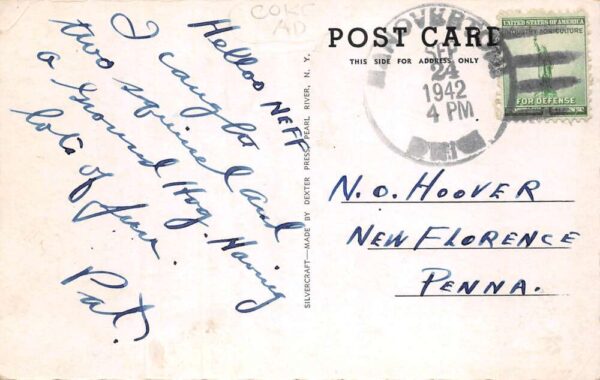 COL
AD
Helloo NEFF
I caught
two squirrel and
a Ground Hog. Having
lots of fun.
Pat.
SILVERCRAFT—MADE BY DEXTER PRESS, PEARL RIVER, N. Y.
POST CARD
THIS SIDE FOR ADDRESS ONLY
SEP
24
1942
4 PM
UNITED STATES OF AMERICA
INDUSTRY AGRICULTURE
FOR DEFENSE
N.O. HOOVER
NEW FLORENCE
PENNA.